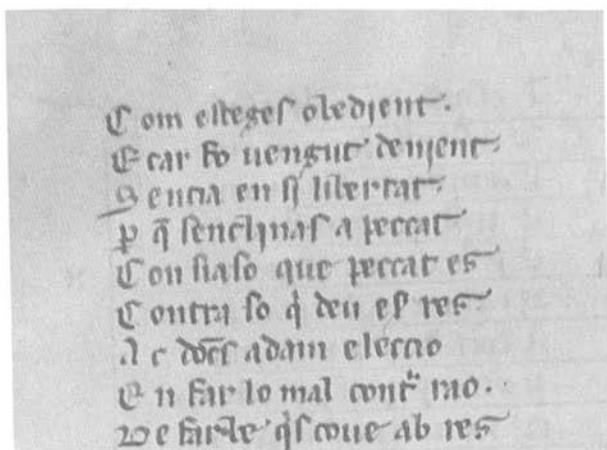 C om esteges obedient.
E car fo uengut denient.
S encia en si libertat.
P q̄ senclinas a peccat
C on siaso que peccat es
C ontra so q̇ deu es̄ res
A c doc̄s adam eleccio
E n far lo mal contᵃ rao.
D e farle q̇s coue ab res